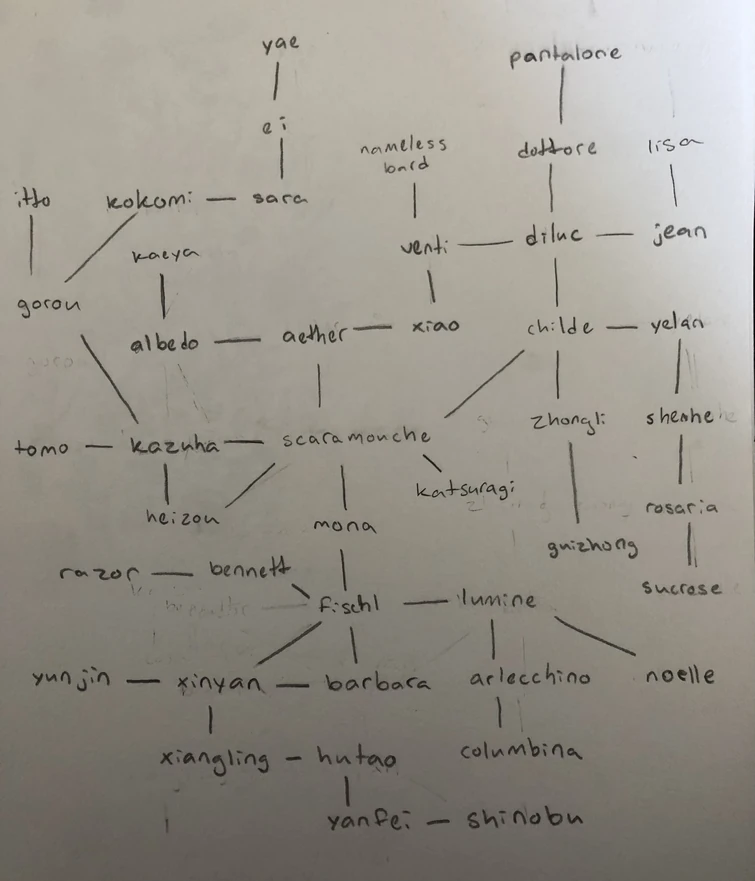 yae
pantalone
ei
nameless
bard
dottore
lisa
itto
kokomi
sara
kaeya
venti
diluc
jean
gorou
albedo
aether
xiao
childe
yelan
tomo
kazuha
scaramouche
zhongli
shenhe
katsuragi
heizou
mona
rosaria
guizhong
razor
bennett
sucrose
fischl
lumine
yunjin
xinyan
barbara
arlecchino
noelle
xiangling
hutao
columbina
yanfei
shinobu